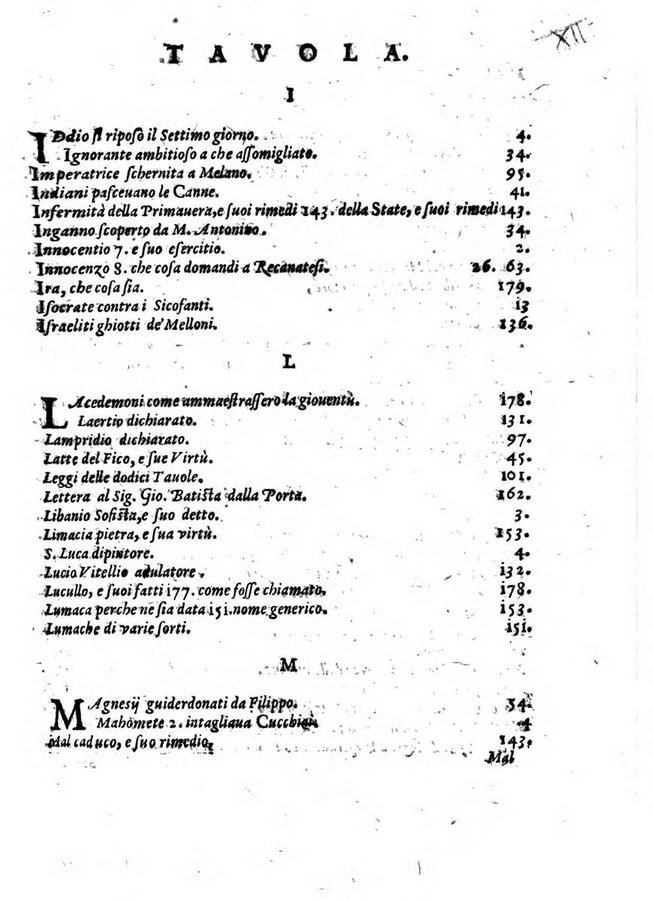 XII
TAVOLA.
I
IDdio si riposò il Settimo giorno. 4.
Ignorante ambitioso a che assomigliato. 34.
Imperatrice schernita a Melano. 95.
Indiani pasceuano le Canne. 41.
Infermità della Primauera, e suoi rimedi 143. della State, e suoi rimedi 143.
Inganno scoperto da M. Antonino. 34.
Innocentio 7. e suo esercitio. 2.
Innocenzo 8. che cosa domandi a Recanatesi. 26. 63.
Ira, che cosa sia. 179.
Isocrate contra i Sicofanti. 13
Israeliti ghiotti de' Melloni. 136.
L
LAcedemoni come ammaestrassero la giouentù. 178.
Laertio dichiarato. 131.
Lampridio dichiarato. 97.
Latte del Fico, e sue Virtù. 45.
Leggi delle dodici Tauole. 101.
Lettera al Sig. Gio. Batista dalla Porta. 162.
Libanio Sofista, e suo detto. 3.
Limacia pietra, e sua virtù. 153.
S. Luca dipintore. 4.
Lucio Vitellio adulatore. 132.
Lucullo, e suoi fatti 177. come fosse chiamato. 178.
Lumaca perche ne sia data 151. nome generico. 153.
Lumache di varie sorti. 151.
M
MAgnesij guiderdonati da Filippo. 34.
Mahòmete 2. intagliaua Cucchiai. 4
Mal caduco, e suo rimedio. 143.
Mal